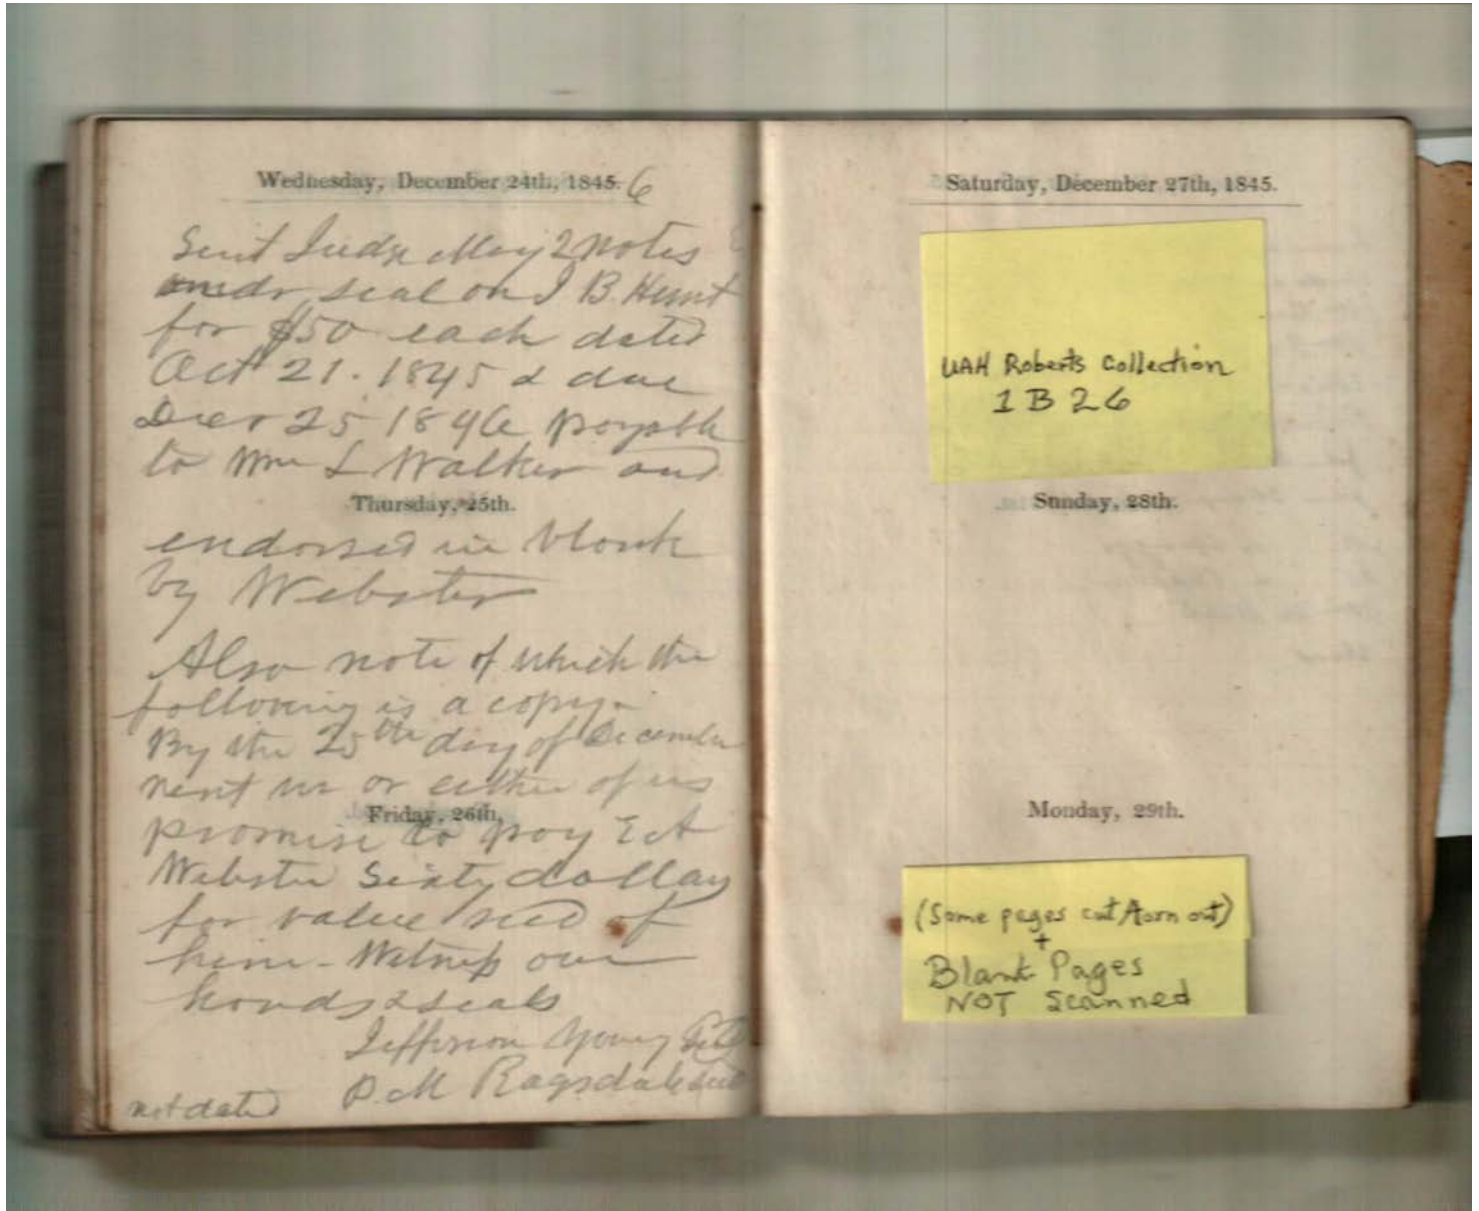 Wednesday, December 24th, 1845. 6
Sent Judge May 2 notes
under seal on J B. Hunt
for $50 each dated
Oct 21. 1845 & due
Decr 25 1846 payable
to Wm L Walker and
Thursday, 25th.
endorsed in blank
by Webster
Also note of which the
following is a copy.
By the 25th day of December
next we or either of us
Friday, 26th,
promise to pay E A
Webster Sixty dollars
for value recd of
him - Witness our
hands & seals
Jefferson Young Seal
P. M Ragsdale Seal
not dated
Saturday, December 27th, 1845.
UAH Roberts Collection
1 B 26
Sunday, 28th.
Monday, 29th.
(Some pages cut/torn out)
+
Blank Pages
NOT Scanned